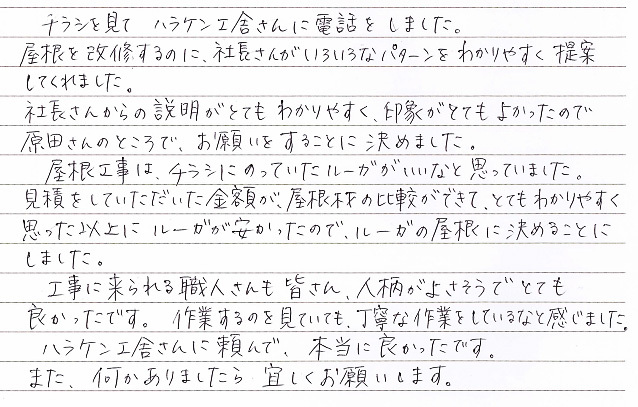 チラシを見て ハラケン工舎さんに電話をしました。
屋根を改修するのに、社長さんがいろいろなパターンをわかりやすく提案
してくれました。
社長さんからの説明がとてもわかりやすく、印象がとてもよかったので
原田さんのところで、お願いをすることに決めました。
屋根工事は、チラシにのっていたルーガがいいなと思っていました。
見積をしていただいた金額が、屋根材の比較ができて、とてもわかりやすく
思った以上にルーガが安かったので、ルーガの屋根に決めることに
しました。
工事に来られる職人さんも皆さん、人柄がよさそうでとても
良かったです。 作業するのを見ていても、丁寧な作業をしているなと感じました。
ハラケン工舎さんに頼んで、本当に良かったです。
また、何かありましたら宜しくお願いします。